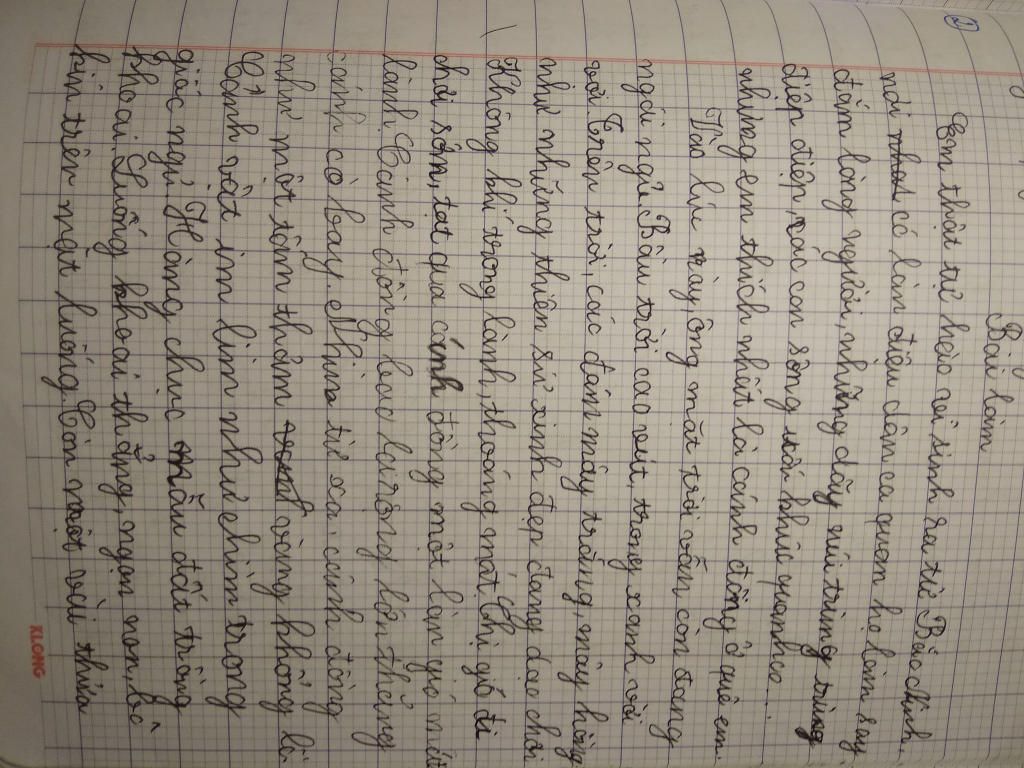 Bài làm
Em thật tự hào vì sinh ra từ Bắc Ninh,
nơi có làn điệu dân ca quan họ làm say
đắm lòng người, những dãy núi trùng trùng
điệp điệp, các con sông uốn khúc quanh co ...
nhưng em thích nhất là cánh đồng ở quê em.
Vào lúc này, ông mặt trời vẫn còn đang
ngái ngủ. Bầu trời cao vút, trong xanh vời
vời. Trên trời, các đám mây trắng, mây hồng
như những thiên sứ xinh đẹp đang dạo chơi.
Không khí trong lành, thoáng mát. Chị gió đi
chơi sớm, tạt qua cánh đồng một làn gió mát
lành. Cánh đồng bao la, rộng lớn thẳng
cánh cò bay. Nhìn từ xa, cánh đồng
như một tấm thảm vàng khổng lồ.
Cảnh vật im lìm như chìm trong
giấc ngủ. Hàng chục mẫu đất trồng
khoai. Luống khoai thẳng, ngọn non, bò
kín trên mặt luống. Còn một vài thửa
XLONG